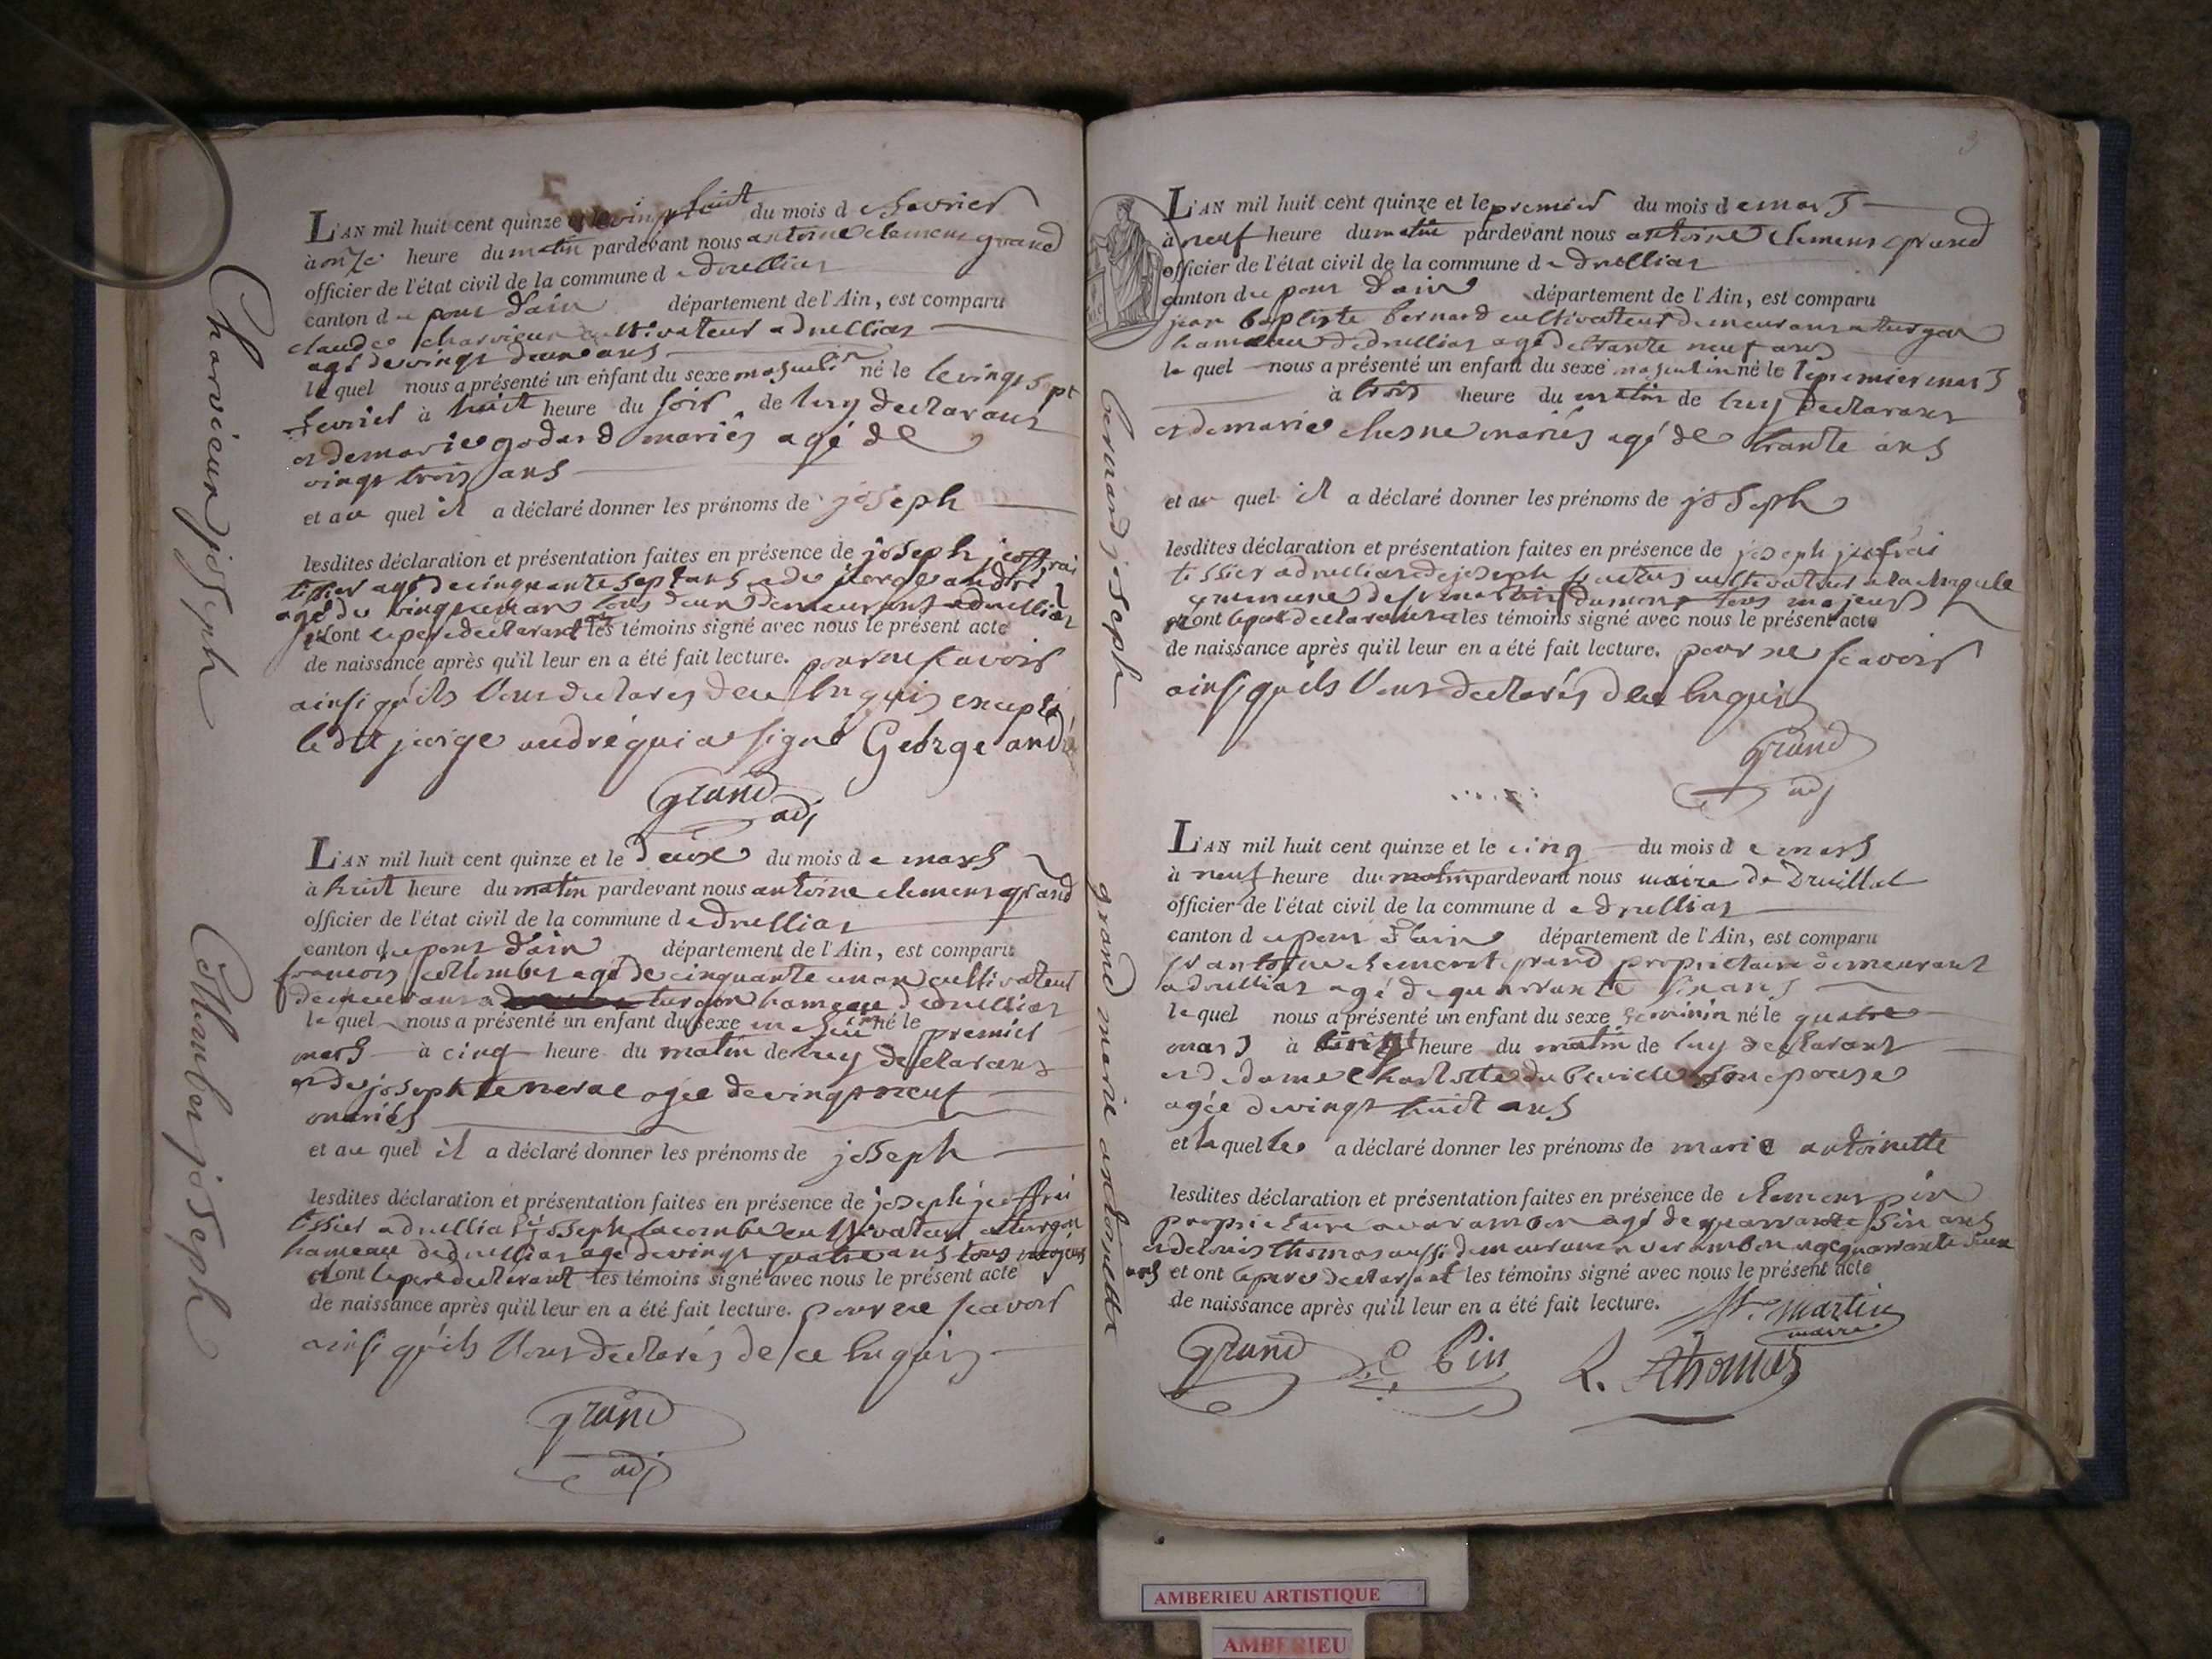 Charvieux joseph
L'AN mil huit cent quinze et le vingt huit du mois de fevrier
à onze heure du matin pardevant nous antoine clemens grand
officier de l'état civil de la commune de druilliat
canton du pont dain département de l'Ain, est comparu
claude charvieux cultivateur a druilliat
agé de vingt deux ans
le quel nous a présenté un enfant du sexe masculin né le le vingt sept
fevrier à huit heure du soir de luy declarant
et de marie godard mariés agé de
vingt trois ans
et au quel il a déclaré donner les prénoms de joseph
lesdites déclaration et présentation faites en présence de joseph jeoffrai
tissier agé de cinquante sept ans et de jorge andré
agé de tous deux demeurant a druilliat
ont le pere declarant les témoins signé avec nous le présent acte
de naissance après qu'il leur en a été fait lecture. pour ne scavoir
ainsi qu'ils l'ont declarés de ce enquis excepté
le dit jorge andré qui a signé George andré
grand
adj
Collomber joseph
L'AN mil huit cent quinze et le deux du mois de mars
à huit heure du matin pardevant nous antoine clemens grand
officier de l'état civil de la commune de druilliat
canton du pont dain département de l'Ain, est comparu
francois collomber agé de cinquante un an cultivateur
demeurant a turgon hameau de druilliat
le quel nous a présenté un enfant du sexe né le premier
mars à cinq heure du matin de luy declarant
et de joseph agée de vingt neuf
mariés
et au quel il a déclaré donner les prénoms de joseph
lesdites déclaration et présentation faites en présence de joseph jeoffrai
tissier a druilliat joseph lacombe cultivateur a turgon
hameau de druilliat agé de vingt quatre ans tous majeurs
ont le pere declarant les témoins signé avec nous le présent acte
de naissance après qu'il leur en a été fait lecture. pour ne scavoir
ainsi qu'ils l'ont declarés de ce enquis
grand
adj
3
bernard joseph
L'AN mil huit cent quinze et le premier du mois de mars
à neuf heure du matin pardevant nous antoine clemens grand
officier de l'état civil de la commune de druilliat
canton du pont dain département de l'Ain, est comparu
jean baptiste bernard cultivateur demeurant a turgon
hameau de druilliat agé de trante neuf ans
le quel nous a présenté un enfant du sexe masculin né le le premier mars
à trois heure du matin de luy declarant
et de marie chesne mariés agé de trante ans
et au quel il a déclaré donner les prénoms de joseph
lesdites déclaration et présentation faites en présence de joseph jeofrai
tissier a druilliat et de joseph cultivateur a la
commune de st martin du mont tous majeurs
ont le pere declarant les témoins signé avec nous le présent acte
de naissance après qu'il leur en a été fait lecture. pour ne scavoir
ainsi qu'ils l'ont declarés de ce enquis
grand
adj
grand marie antoinette
L'AN mil huit cent quinze et le cinq du mois de mars
à neuf heure du matin pardevant nous maire de Druillat
officier de l'état civil de la commune de druilliat
canton du pont dain département de l'Ain, est comparu
sr antoine clement grand proprietaire demeurant
a druilliat agé de quarrante ans
le quel nous a présenté un enfant du sexe feminin né le quatre
mars à heure du matin de luy declarant
et de dame charlotte son epouse
agée de vingt huit ans
et la quelle a déclaré donner les prénoms de marie antoinette
lesdites déclaration et présentation faites en présence de clemens pin
proprietaire a varambon agé de quarrante ans
et de louis thomas aussi demeurant a varambon agé quarrante deux
ans et ont le pere declarant les témoins signé avec nous le présent acte
de naissance après qu'il leur en a été fait lecture. martin
maire
Grand C Pin L. Thomas
AMBERIEU ARTISTIQUE
AMBERIEU